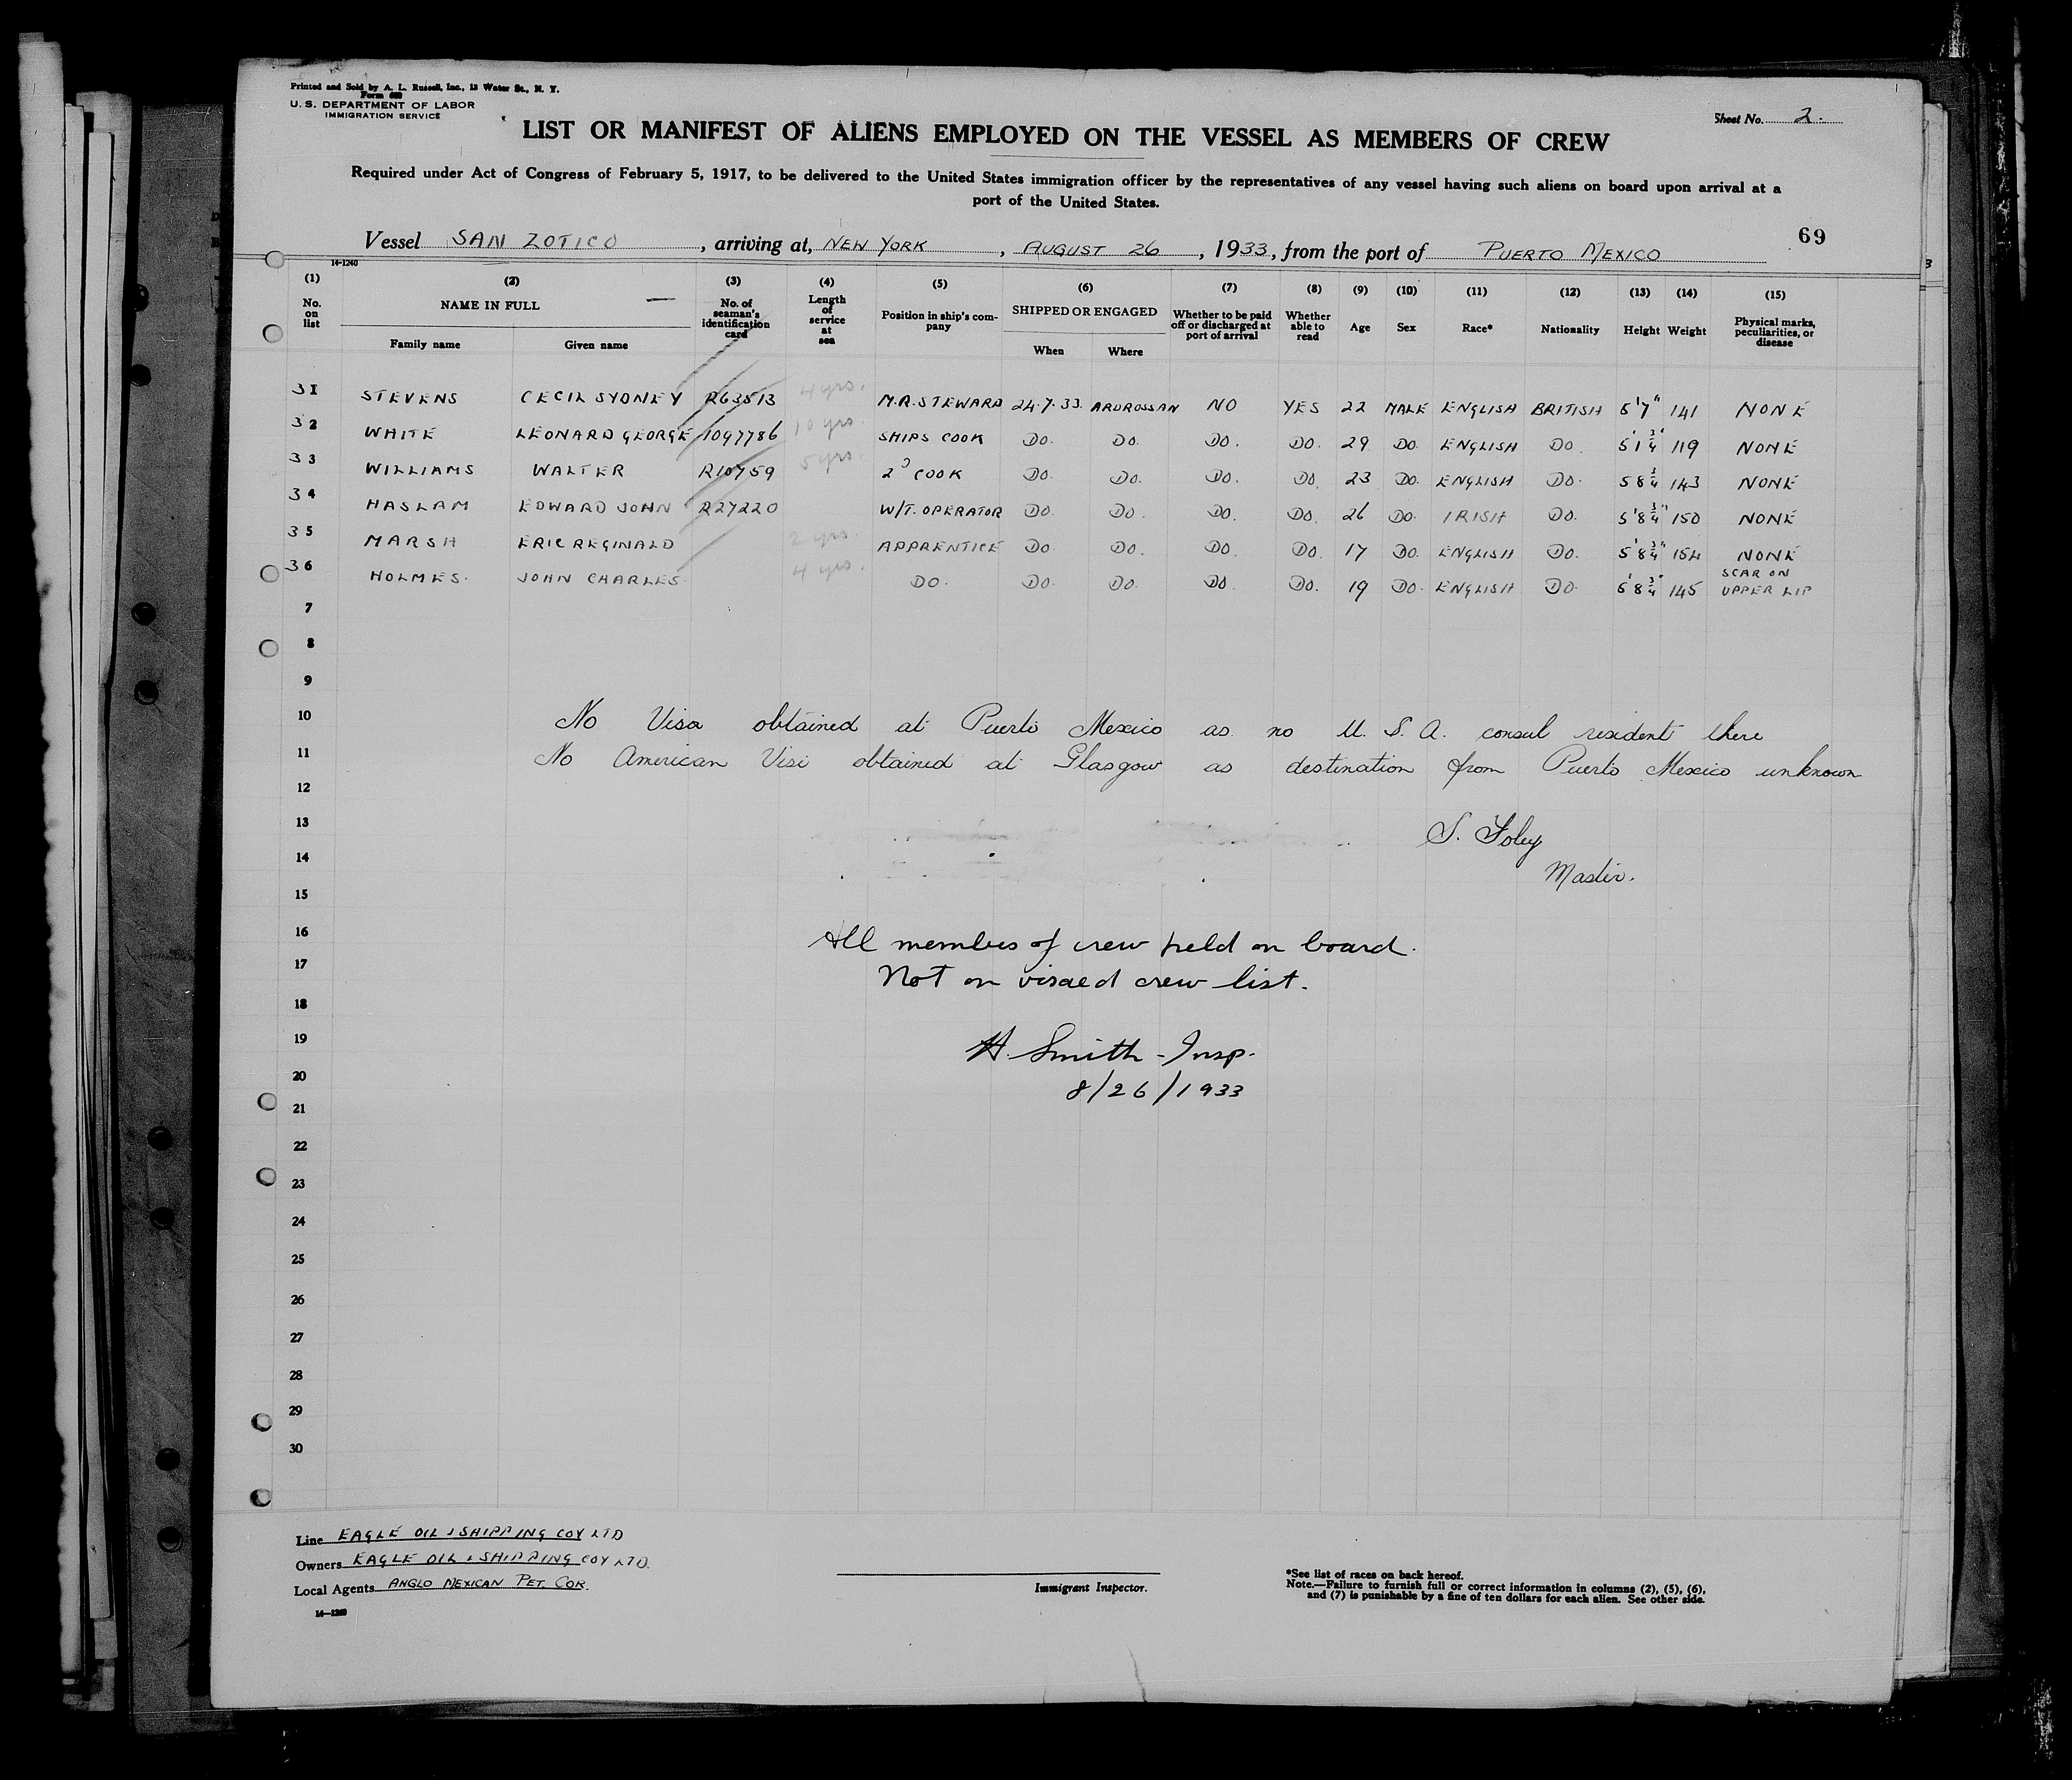 Printed and Sold by A. L. Russell, Inc., 13 Water St., N. Y.
Form 680
U. S. DEPARTMENT OF LABOR
IMMIGRATION SERVICE
Sheet No. 2.
LIST OR MANIFEST OF ALIENS EMPLOYED ON THE VESSEL AS MEMBERS OF CREW
Required under Act of Congress of February 5, 1917, to be delivered to the United States immigration officer by the representatives of any vessel having such aliens on board upon arrival at a
port of the United States.
69
Vessel SAN ZOTICO, arriving at, NEW YORK, AUGUST 26, 1933, from the port of PUERTO MEXICO
14-1240
(1) (2) (3) (4) (5) (6) (7) (8) (9) (10) (11) (12) (13) (14) (15)
No. on list NAME IN FULL Family name Given name No. of seaman's identification card Length of service at sea Position in ship's company SHIPPED OR ENGAGED When Where Whether to be paid off or discharged at port of arrival Whether able to read Age Sex Race* Nationality Height Weight Physical marks, peculiarities, or disease
31 STEVENS CECIL SYDNEY R63513 4 yrs. M.R. STEWARD 24.7.33 ARDROSSAN NO YES 22 MALE ENGLISH BRITISH 5'7" 141 NONE
32 WHITE LEONARD GEORGE 1097786 10 yrs. SHIPS COOK DO. DO. DO. DO. 29 DO. ENGLISH DO. 5'1 3/4 119 NONE
33 WILLIAMS WALTER R10759 5 yrs. 2D COOK DO. DO. DO. DO. 23 DO. ENGLISH DO. 5 8 3/4 143 NONE
34 HASLAM EDWARD JOHN R27220 W/T. OPERATOR DO. DO. DO. DO. 26 DO. IRISH DO. 5'8 3/4" 150 NONE
35 MARSH ERIC REGINALD 2 yrs. APPRENTICE DO. DO. DO. DO. 17 DO. ENGLISH DO. 5'8 3/4" 154 NONE
36 HOLMES. JOHN CHARLES. 4 yrs. DO. DO. DO. DO. DO. 19 DO. ENGLISH DO. 5'8 3/4" 145 SCAR ON UPPER LIP
7
8
9
10 No Visa obtained at Puerto Mexico as no U. S. A. consul resident there
11 No American Visi obtained at Glasgow as destination from Puerto Mexico unknown
12
13 S. Foley
14 Master.
15
16 All members of crew held on board.
17 Not on visaed crew list.
18
19 H. Smith - Insp.
20 8/26/1933
21
22
23
24
25
26
27
28
29
30
Line EAGLE OIL & SHIPPING COY LTD
Owners EAGLE OIL & SHIPPING COY LTD.
Local Agents ANGLO MEXICAN PET. COR.
14-1240
Immigrant Inspector.
*See list of races on back hereof.
Note.—Failure to furnish full or correct information in columns (2), (5), (6),
and (7) is punishable by a fine of ten dollars for each alien. See other side.